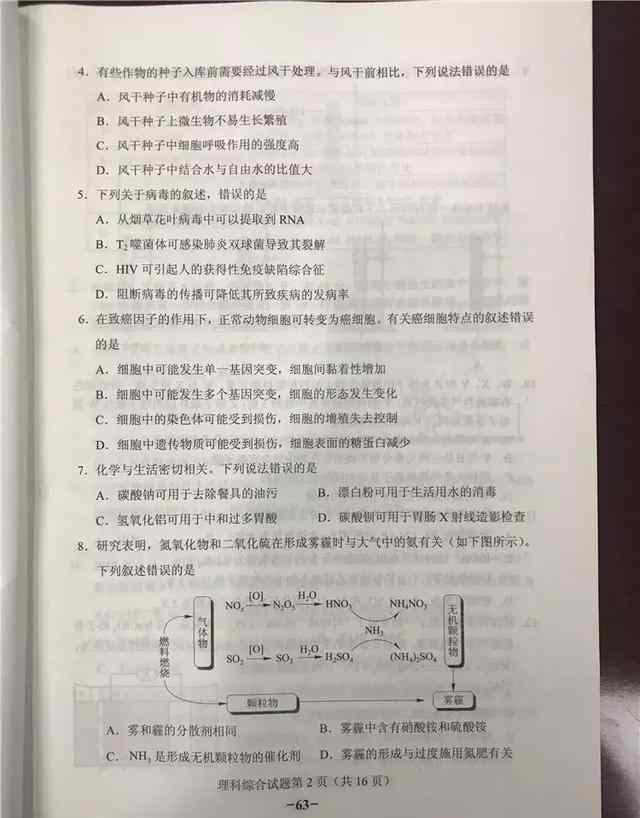 4．有些作物的种子入库前需要经过风干处理。与风干前相比，下列说法错误的是
A．风干种子中有机物的消耗减慢
B．风干种子上微生物不易生长繁殖
C．风干种子中细胞呼吸作用的强度高
D．风干种子中结合水与自由水的比值大
5．下列关于病毒的叙述，错误的是
A．从烟草花叶病毒中可以提取到 RNA
B．T₂噬菌体可感染肺炎双球菌导致其裂解
C．HIV 可引起人的获得性免疫缺陷综合征
D．阻断病毒的传播可降低其所致疾病的发病率
6．在致癌因子的作用下，正常动物细胞可转变为癌细胞。有关癌细胞特点的叙述错误
的是
A．细胞中可能发生单一基因突变，细胞间黏着性增加
B．细胞中可能发生多个基因突变，细胞的形态发生变化
C．细胞中的染色体可能受到损伤，细胞的增殖失去控制
D．细胞中遗传物质可能受到损伤，细胞表面的糖蛋白减少
7．化学与生活密切相关。下列说法错误的是
A．碳酸钠可用于去除餐具的油污 B．漂白粉可用于生活用水的消毒
C．氢氧化铝可用于中和过多胃酸 D．碳酸钡可用于胃肠 X 射线造影检查
8．研究表明，氮氧化物和二氧化硫在形成雾霾时与大气中的氨有关（如下图所示）。
下列叙述错误的是
燃料燃烧
气体物
NOₓ [O] N₂O₅ H₂O HNO₃ NH₄NO₃
NH₃
SO₂ [O] SO₃ H₂O H₂SO₄ (NH₄)₂SO₄
无机颗粒物
颗粒物
雾霾
A．雾和霾的分散剂相同 B．雾霾中含有硝酸铵和硫酸铵
C．NH₃ 是形成无机颗粒物的催化剂 D．雾霾的形成与过度施用氮肥有关
理科综合试题第 2 页（共 16 页）
-63-